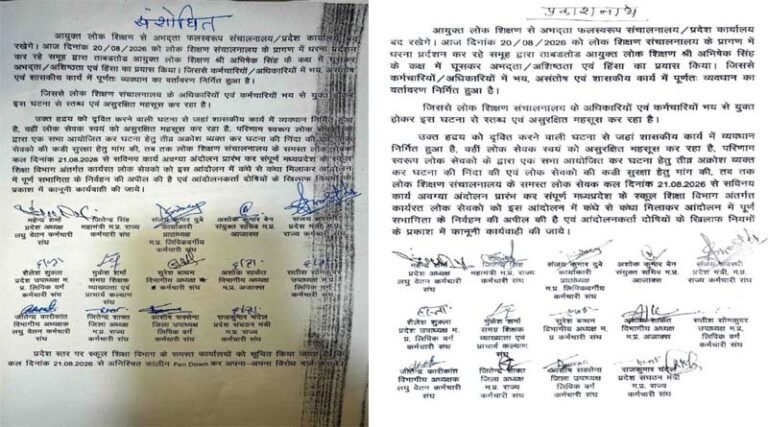 संशोधित
आयुक्त लोक शिक्षण से अभद्रता फलस्वरूप संचालनालय/प्रदेश कार्यालय
रखेगे। आज दिनांक 20/08/2026 को लोक शिक्षण संचालनालय के प्रागण में
धरना प्रदर्शन कर रहे समूह द्वारा ताबडतोड आयुक्त लोक शिक्षण श्री अभिषेक सिंह
के कक्ष में घूसकर अभद्रता/अशिष्ठता एवं हिंसा का प्रयास किया। जिससे
कर्मचारियों/अधिकारियों में भय, असंतोष
एवं शासकीय कार्य में पूर्णतः व्यवधान का वर्तावरण निर्मित हुआ है।
जिससे लोक शिक्षण संचालनालय के अधिकारियों एवं कर्मचारियों भय से युक्त होकर
इस घटना से स्तब्ध एवं असुरक्षित महसूस कर रहा है।
उक्त हृदय को दृवित करने वाली घटना से जहां शासकीय कार्य में व्यवधान निर्मित
है, वहीं लोक सेवक स्वयं को असुरक्षित महसूस कर रहा है, परिणाम स्वरूप लोक सेवकों
के द्वारा एक सभा आयोजित कर घटना हेतु तीव्र अक्रोश व्यक्त कर घटना की निंदा की एवं लोक
सेवको की कडी सुरक्षा हेतु मांग की, तब तक लोक शिक्षण संचालनालय के समस्त लोक सेवक
कल दिनांक 21.08.2026 से सविनय कार्य अवग्या अंदोलन प्रारंभ कर संपूर्ण मध्यप्रदेश के स्कूल
शिक्षा विभाग अंतर्गत कार्यरत लोक सेवको को इस आंदोलन में कंधे से कंधा मिलाकर आंदोलन में
पूर्ण सभागिता के निर्वहन की अपील की है एवं आंदोलनकर्ता दोषियों के खिलाफ नियमों के
प्रकाश में कानूनी कार्यवाही की जाये।
महेन्द्र शर्मा जितेन्द्र सिंह संजय कुमार दुबे अशोक कुमार बेन
प्रदेश अध्यक्ष महामंत्री म.प्र. राज्य कार्यकारी संयुक्त सचिव म.प्र.
लघु वेतन कर्मचारी कर्मचारी संघ प्राताध्यक्ष अजाक्स
संघ म.प्र. लिपिकवर्गीय
कर्मचारी संघ
शैलेश शुक्ला मुकेश शर्मा सुरेश बाथम अशोक साकेत सतीश सोमकुवर
प्रदेश उपाध्यक्ष समग्र शिक्षक विभागीय अध्यक्ष विभागीय अध्यक्ष
म.प्र. लिपिक वर्ग व्याख्याता एवं म.प्र. अजाक्स
कर्मचारी संघ प्राचार्य कल्याण
संघ
जीतेन्द्र कारीकांत जितेन्द्र शाक्त आशीष सक्सेना राजकुमार चंदेल
विभागीय अध्यक्ष जिला अध्यक्ष जिला उपाध्यक्ष प्रदेश संघठन मंत्री
लघु वेतन कर्मचारी म.प्र. राज्य लिपिक वर्ग म.प्र. राज्य
संघ कर्मचारी संघ कर्मचारी संघ कर्मचारी संघ
प्रदेश स्तर पर स्कूल शिक्षा विभाग के समस्त कार्यालयों को सूचित किया जाता
कल दिनांक 21.08.2026 से अनिश्चित कालीन Pen Down कर अपना-अपना विरोध दर्ज
प्रकाशनार्थ
आयुक्त लोक शिक्षण से अभद्रता फलस्वरूप संचालनालय/प्रदेश कार्यालय
बद रखेगे। आज दिनांक 20/08/2026 को लोक शिक्षण संचालनालय के प्रागण में
धरना प्रदर्शन कर रहे समूह द्वारा ताबडतोड आयुक्त लोक शिक्षण श्री अभिषेक सिंह
के कक्ष में घूसकर अभद्रता/अशिष्ठता एवं हिंसा का प्रयास किया। जिससे
कर्मचारियों/अधिकारियों में भय, असंतोष एवं शासकीय कार्य में पूर्णतः व्यवधान का
वर्तावरण निर्मित हुआ है।
जिससे लोक शिक्षण संचालनालय के अधिकारियों एवं कर्मचारियों भय से युक्त
होकर इस घटना से स्तब्ध एवं असुरक्षित महसूस कर रहा है।
उक्त हृदय को दृवित करने वाली घटना से जहां शासकीय कार्य में व्यवधान
निर्मित है, वहीं लोक सेवक स्वयं को असुरक्षित महसूस कर रहा है, परिणाम
स्वरूप लोक सेवकों के द्वारा एक सभा आयोजित कर घटना हेतु तीव्र अक्रोश व्यक्त
कर घटना की निंदा की एवं लोक सेवको की कडी सुरक्षा हेतु मांग की, तब तक
लोक शिक्षण संचालनालय के समस्त लोक सेवक कल दिनांक 21.08.2026 से सविनय
कार्य अवग्या अंदोलन प्रारंभ कर संपूर्ण मध्यप्रदेश के स्कूल शिक्षा विभाग अंतर्गत
कार्यरत लोक सेवको को इस आंदोलन में कंधे से कंधा मिलाकर आंदोलन में पूर्ण
सभागिता के निर्वहन की अपील की है एवं आंदोलनकर्ता दोषियों के खिलाफ नियमों
के प्रकाश में कानूनी कार्यवाही की जाये।
प्रदेश अध्यक्ष महामंत्री म.प्र. संजय कुमार दुबे अशोक कुमार बेन
लघु वेतन कर्मचारी राज्य कर्मचारी कार्यकारी संयुक्त सचिव म.प्र. प्रदेश मंत्री, म.प्र.
संघ संघ प्राताध्यक्ष अजाक्स राज्य
म.प्र. लिपिकवर्गीय कर्मचारी संघ
कर्मचारी संघ
शैलेश शुक्ला मुकेश शर्मा सुरेश बाथम अशोक साकेत सतीश सोमकुवर
प्रदेश उपाध्यक्ष म. समग्र शिक्षक विभागीय अध्यक्ष विभागीय अध्यक्ष जिला अध्यक्ष
प्र. लिपिक वर्ग व्याख्याता एवं म.प्र. राज्य म.प्र. अजाक्स म.प्र. लिपिक वर्ग
कर्मचारी संघ प्राचार्य कल्याण कर्मचारी संघ कर्मचारी संघ
संघ
जीतेन्द्र कारीकांत जितेन्द्र शाक्त आशीष सक्सेना राजकुमार चंदेल
विभागीय अध्यक्ष जिला अध्यक्ष जिला उपाध्यक्ष प्रदेश संघठन मंत्री
लघु वेतन कर्मचारी म.प्र. राज्य लिपिक वर्ग म.प्र. राज्य
संघ कर्मचारी संघ कर्मचारी संघ कर्मचारी संघ